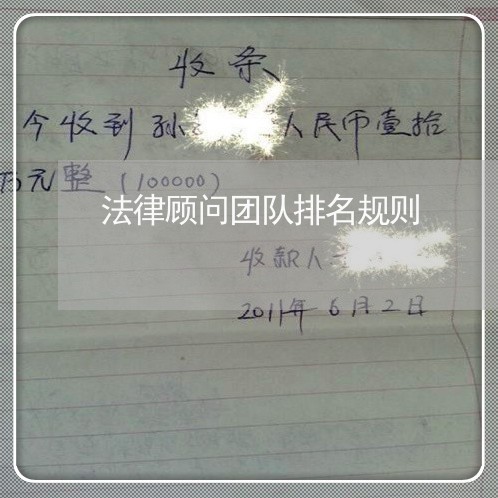 收条
今收到孙 人民币壹拾
万元整（100000）
法律顾问团队排名规则
收款人
2011年6月2日